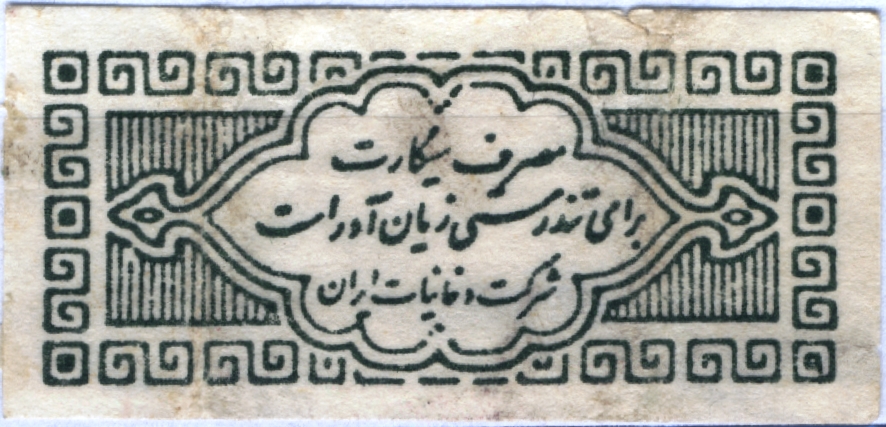 مصرف سیگارت
برای تندرستی زیان آور است
شرکت دخانیات ایران